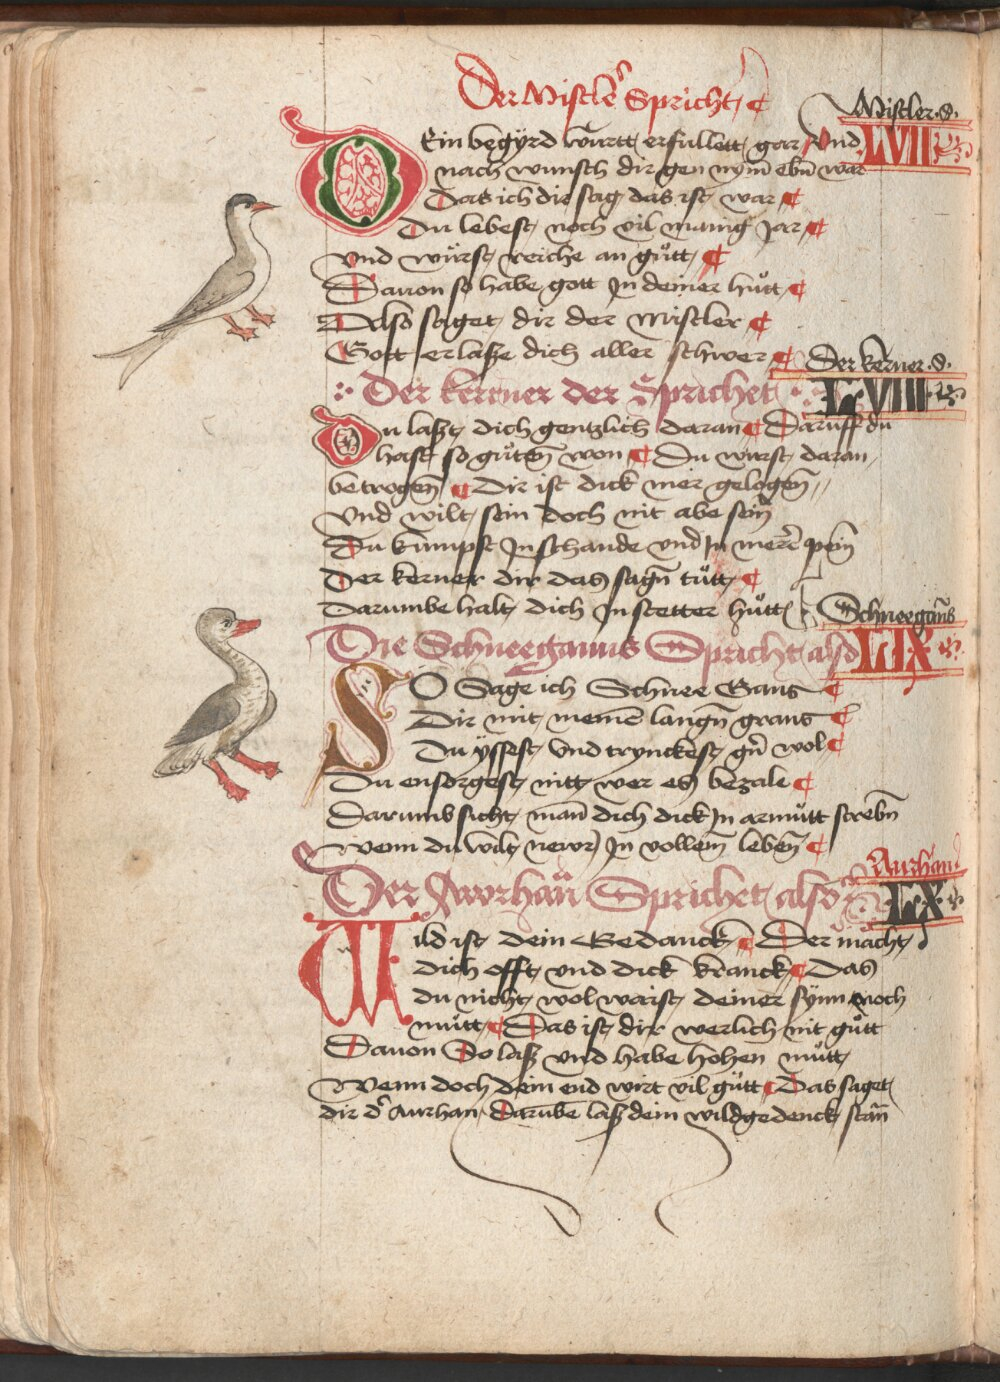 Der Mistler Spricht
Mistler d.
LVII
Dein begyrd württ erfüllett gar Vnd
nach wunsch dir gen nym ebn war
Das ich dir sag das ist war
Du lebest noch vil manig Jar
Vnd würst reiche an gůtt
Dauon so habe gott In deiner hůtt
Also saget dir der Mistler
Gott erlasze dich aller schwer
Der kerner d.
LVIII
Der kerner der Sprichet
Du laszt dich gentzlich daran Daruff du
hast so gůten won Du wirst daran
betrogen Dir ist dick mer gelogen
Vnd wilt sein doch nit abe sein
Du kumpst In schande vnd In mere pein
Der kerner dir das sagn tůtt
Darumbe halt dich In stetter hůtt
Schneegans
LIX
Die Schneeganns Spricht also
SO Sage ich Schnee Gans
Dir mit meinen langn grans
Du yssest Vnd trynckest gern wol
Du ensorgest nitt wer es bezale
Darumb sicht man dich dick In armůtt strebn
Wenn du wilt newr In vollem leben
Aurhan
LX
Der Aworhan Sprichet also
Wild ist dein Gedanck Der macht
dich offt vnd dick kranck Das
du nicht wol waist deiner synn noch
můtt Das ist dir werlich nit gůtt
Dauon So lasz vnd habe hohen můtt
Wenn doch dein end wirt vil gůtt Das saget
dir der Aurhan Darumbe lasz dein wild gedenck stan